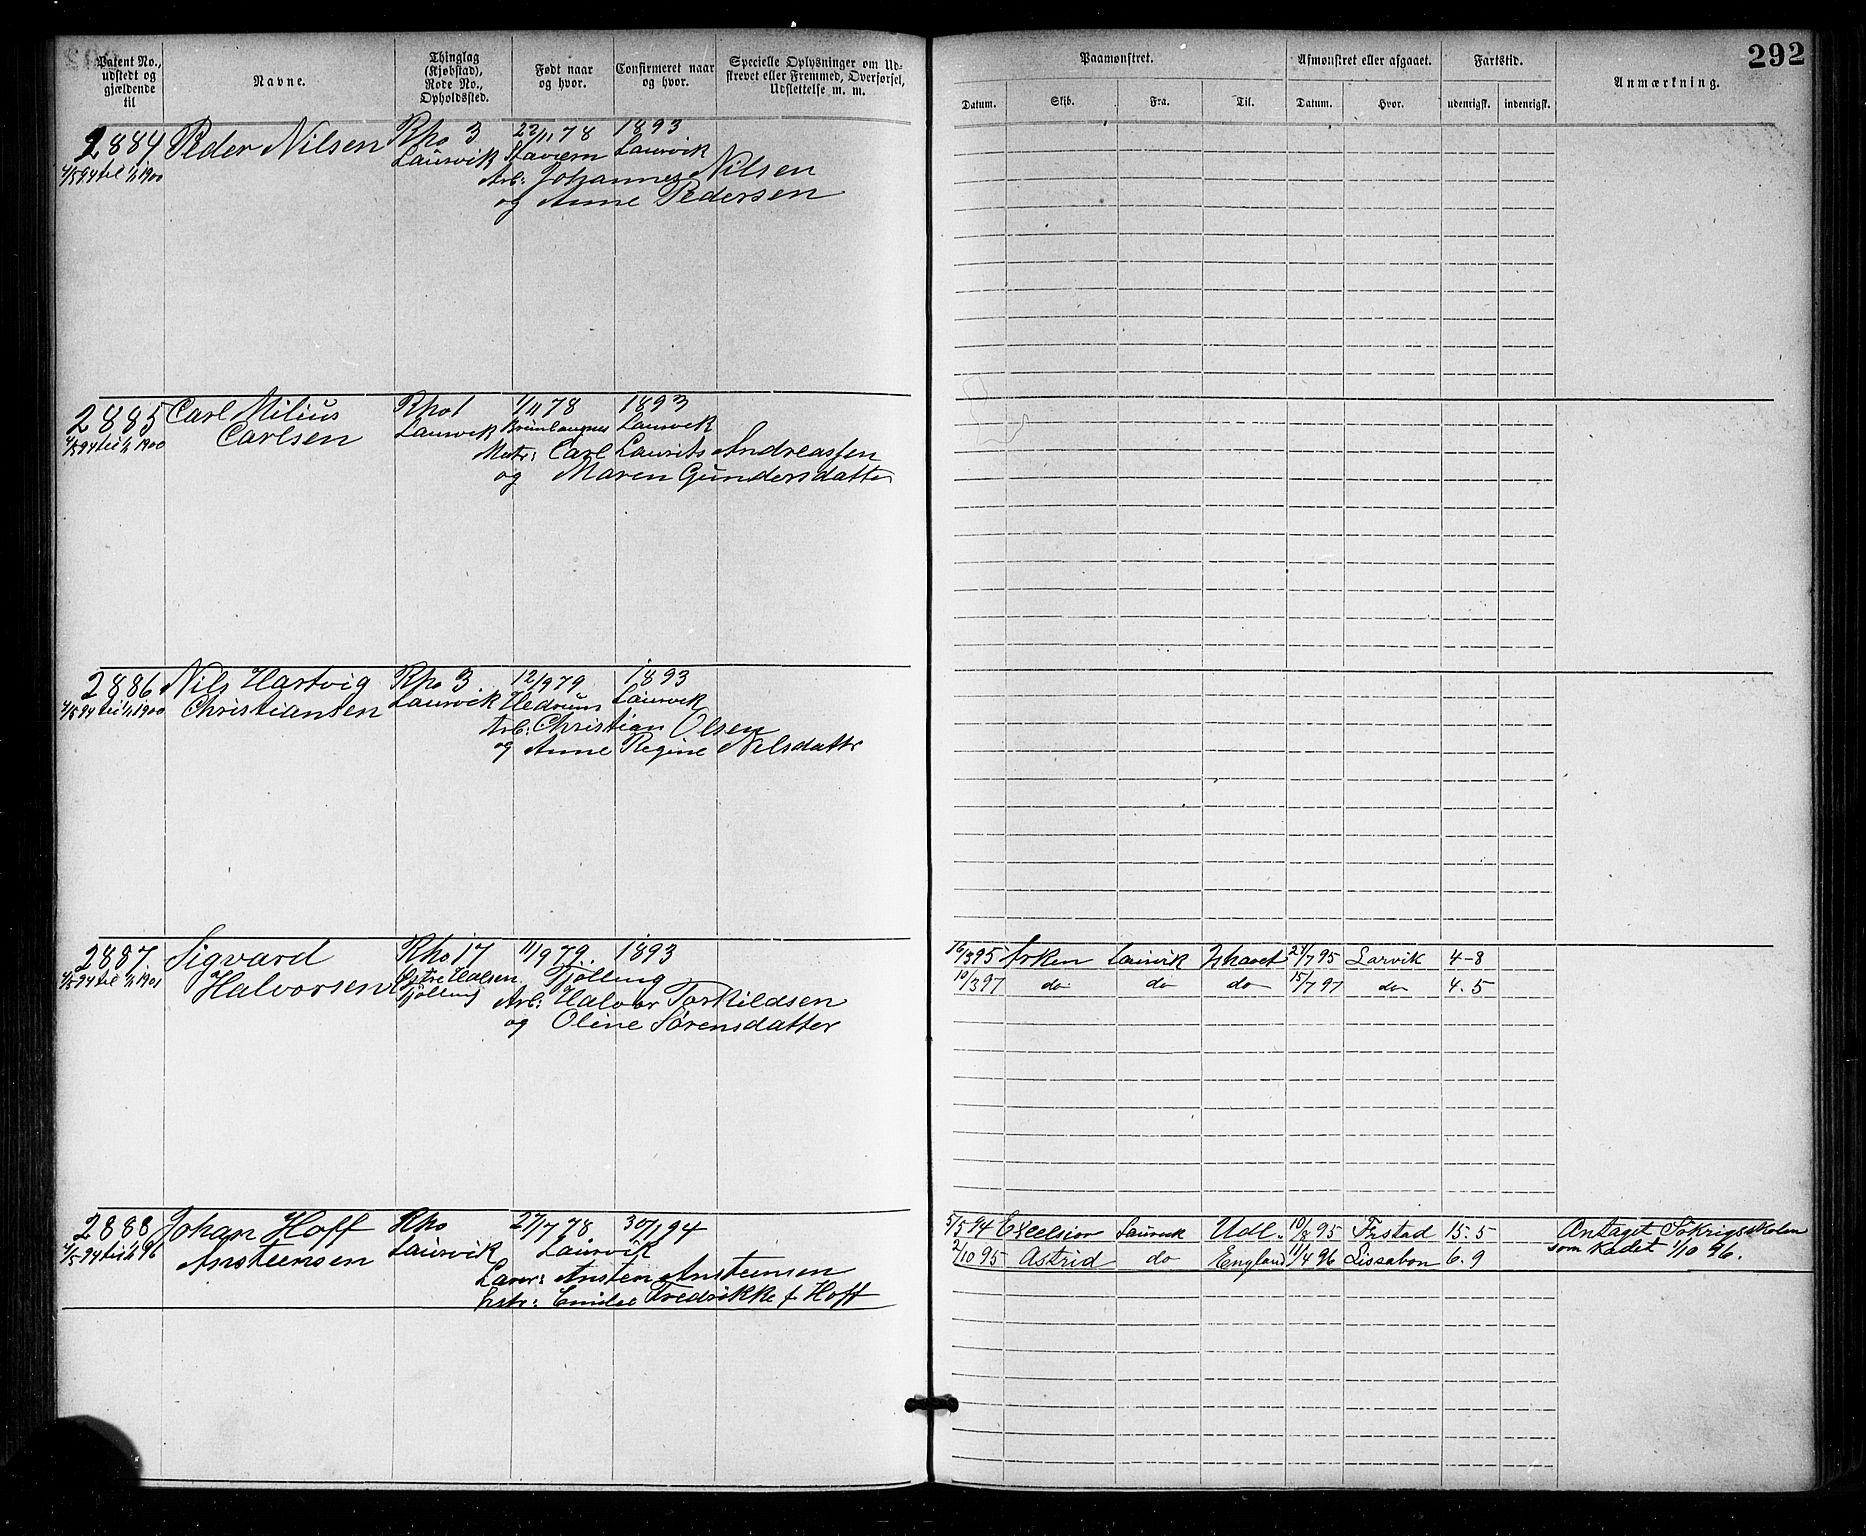 292
Patent No., udstedt og gjældende til
Navne.
Thinglag (Kjøbstad), Rode No., Opholdssted.
Født naar og hvor.
Confirmeret naar og hvor.
Specielle Oplysninger om Udskrevet eller Fremmed, Overførsel, Udslettelse m. m.
Paamønstret.
Afmønstret eller afgaaet.
Fartstid.
Anmærkning.
Datum.
Skib.
Fra.
Til.
Datum.
Hvor.
udenrigsk.
indenrigsk.
2884 Peder Nilsen Rho 3 22/11 78 1893
4/5 94 til 1/1 1900 Laurvik Stavern Laurvik
Arb: Johannes Nilsen
og Anne Pedersen
2885 Carl Milius Rho 1 1/11 78 1893
4/5 94 til 1/1 1900 Carlsen Laurvik Brunlangnes Laurvik
Matr: Carl Laurits Andreassen
og Maren Gundersdatter
2886 Nils Hartvig Rho 3. 12/9 79 1893
4/5 94 til 1/1 1900 Christiansen Laurvik Hedrum Laurvik
Arb: Christian Olsen
og Anne Regine Nilsdattr
2887 Sigvard Rho 17 11/9 79. 1893
4/5 94 til 1/1 1901 Halvorsen Østre Halsen Tjølling
Tjølling
Arb: Halvor Torkildsen
og Oline Sørensdatter
16/3 95 Laurvik Ishavet 24/7 95 Larvik 4-8
10/3 97 do do do 15/7 97 do 4.5
2888 Johan Hoff Rho 27/7 78 30/1 94
4/5 94 til 1/1 96 Ansteensen Laurvik Laurvik
Ansten Ansteensen
Emilie Fredrikke f Hoff
5/5 94 Excelsior Laurvik Udl. 10/8 95 Frstad 15.5 Antaget Søkrigsskolen
2/10 95 Astrid do England 11/4 96 Lissabon 6.9 som Kadet 1/10 96.